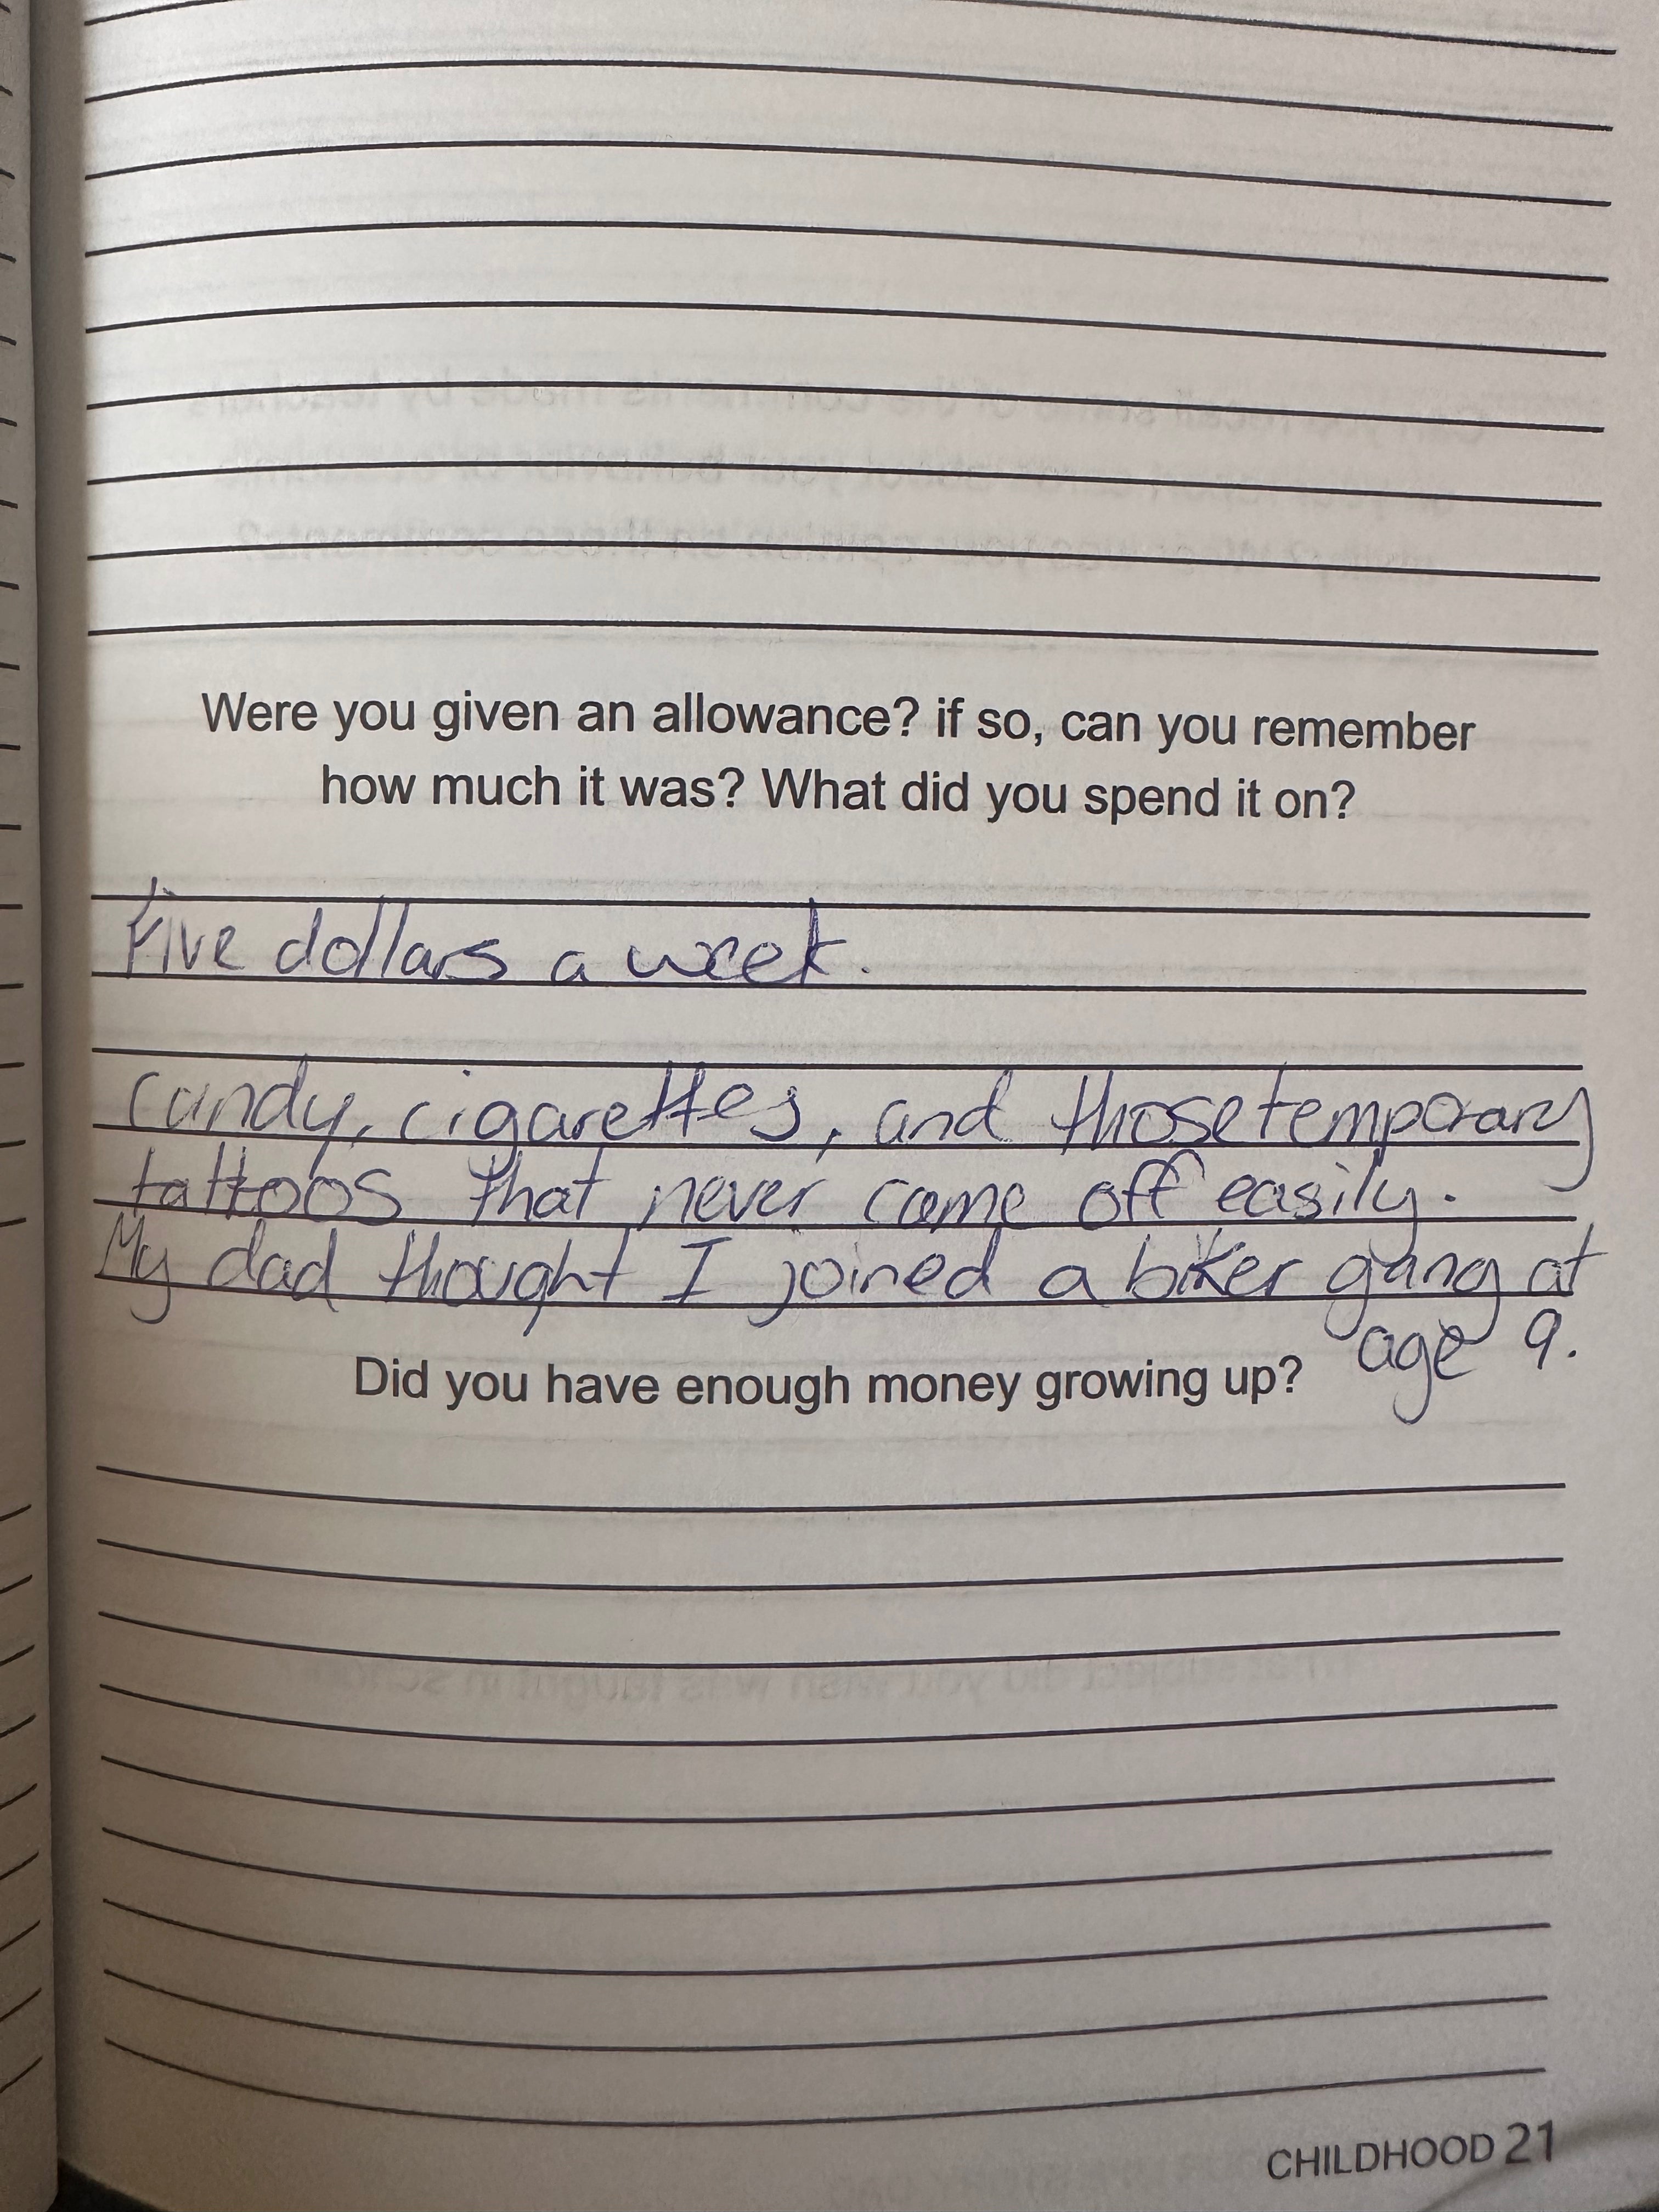 Were you given an allowance? if so, can you remember
how much it was? What did you spend it on?
Five dollars a week.
Candy, cigarettes, and those temporary
tattoos that never came off easily.
My dad thought I joined a biker gang at
age 9.
Did you have enough money growing up?
CHILDHOOD 21